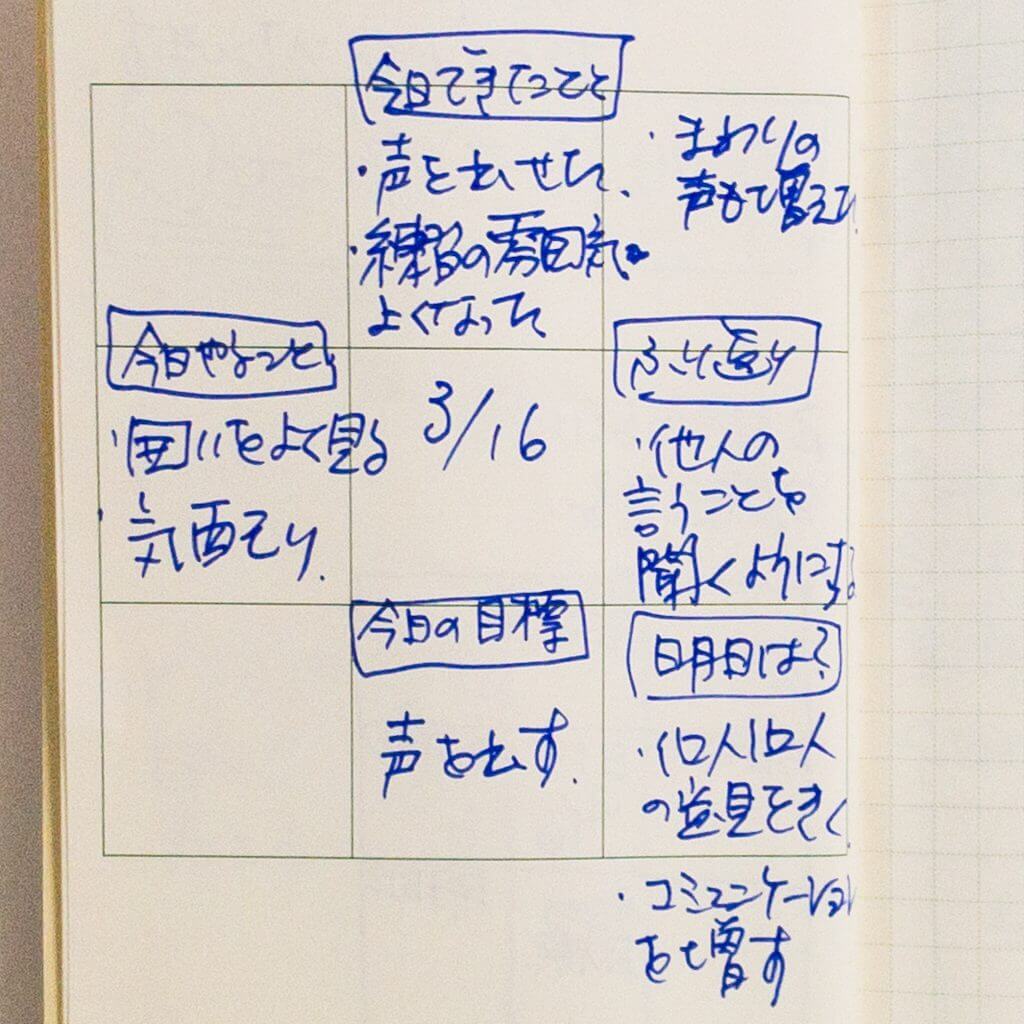 今日できたこと
・声を出せた、
・練習の雰囲気
よくなった
・まわりの
声も増えた
今日やること
・囲いをよく見る
・気配り、
3/16
ふり返り
・他人の
言うことを
聞くようにする
今日の目標
声を出す、
明日は?
・個人個人
の意見をきく
・コミュニケーション
を増す